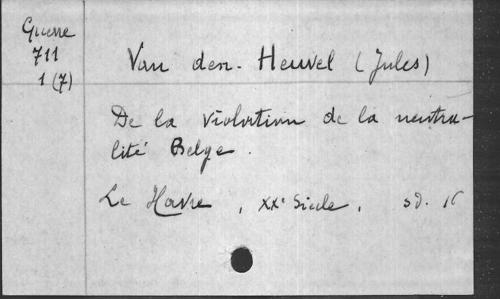 Guerre
711
1 (7)
Van den Heuvel (Jules)
De la violation de la neutra-
lité Belge.
Le Havre, XXe Siècle, sd. 16